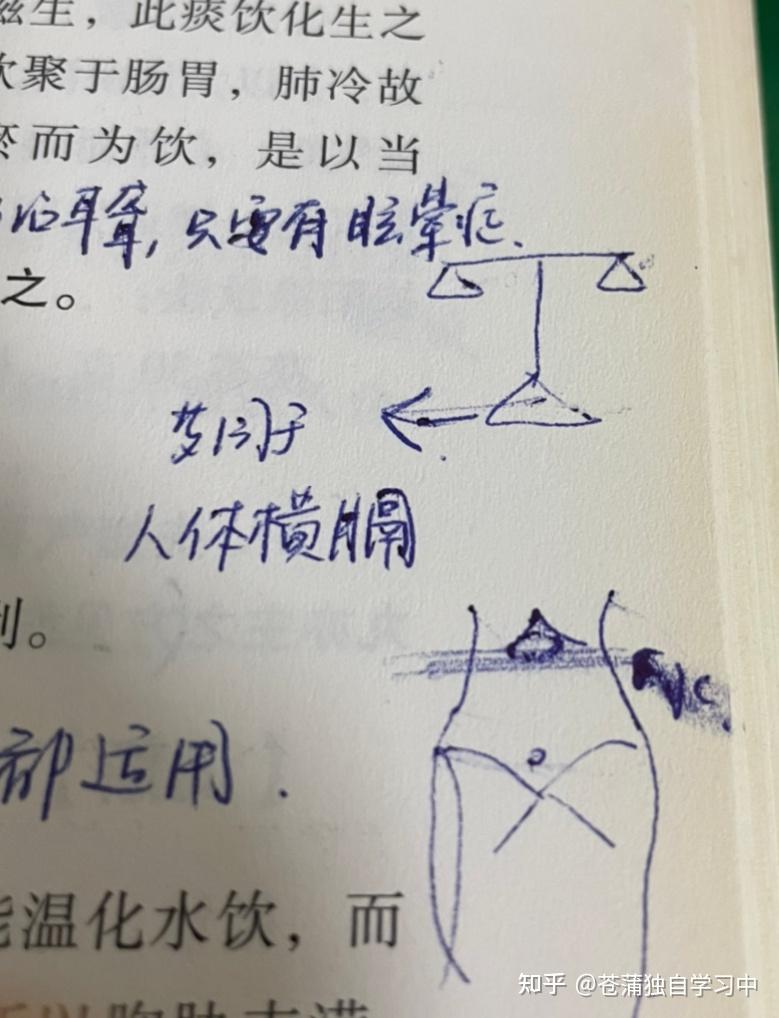 滋生，此痰饮化生之
饮聚于肠胃，肺冷故
瘀而为饮，是以当
耳聋，只要有眩晕症、
之。
人体横膈
利。
部运用.
能温化水饮，而
知乎 @苍蒲独自学习中